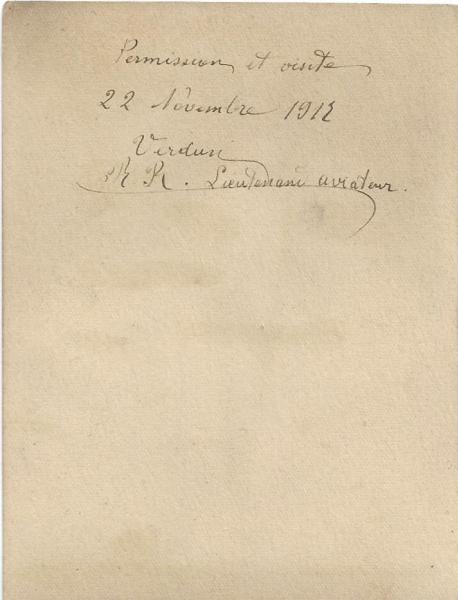 Permission et visite
22 Novembre 191
Verdun
R. Lieutenant aviateur.